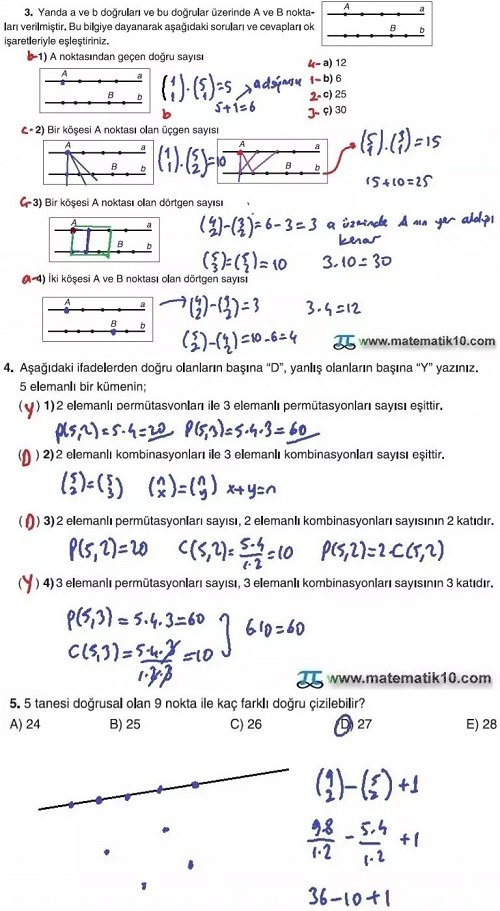 3. Yanda a ve b doğruları ve bu doğrular üzerinde A ve B nokta-
ları verilmiştir. Bu bilgiye dayanarak aşağıdaki soruları ve cevapları ok
işaretleriyle eşleştiriniz.
A a
B b
b-1) A noktasından geçen doğru sayısı
4-a) 12
1-b) 6
2-c) 25
3-ç) 30
A a
B b
(1 1).(5 1)=5 → a doğrusu
5+1=6
b
c-2) Bir köşesi A noktası olan üçgen sayısı
A a
B b
(1 1).(5 2)=10
A a
B b
(5 1).(3 1)=15
15+10=25
ç-3) Bir köşesi A noktası olan dörtgen sayısı
A a
B b
(4 2)-(3 2)=6-3=3 a üzerinde A nın yer aldığı
kenar
(5 3)=(5 2)=10 3.10=30
a-4) İki köşesi A ve B noktası olan dörtgen sayısı
A a
B b
(4 2)-(3 2)=3 3.4=12
(5 2)-(4 2)=10-6=4
www.matematik10.com
4. Aşağıdaki ifadelerden doğru olanların başına “D”, yanlış olanların başına “Y” yazınız.
5 elemanlı bir kümenin;
(Y) 1) 2 elemanlı permütasyonları ile 3 elemanlı permütasyonları sayısı eşittir.
P(5,2)=5.4=20 P(5,3)=5.4.3=60
(D) 2) 2 elemanlı kombinasyonları ile 3 elemanlı kombinasyonları sayısı eşittir.
(5 2)=(5 3) (n x)=(n y) x+y=n
(D) 3) 2 elemanlı permütasyonları sayısı, 2 elemanlı kombinasyonları sayısının 2 katıdır.
P(5,2)=20 C(5,2)=5.4/1.2=10 P(5,2)=2.C(5,2)
(Y) 4) 3 elemanlı permütasyonları sayısı, 3 elemanlı kombinasyonları sayısının 3 katıdır.
P(5,3)=5.4.3=60
C(5,3)=5.4.3/1.2.3=10 } 6.10=60
www.matematik10.com
5. 5 tanesi doğrusal olan 9 nokta ile kaç farklı doğru çizilebilir?
A) 24 B) 25 C) 26 D) 27 E) 28
(9 2)-(5 2)+1
9.8/1.2 - 5.4/1.2 +1
36-10+1